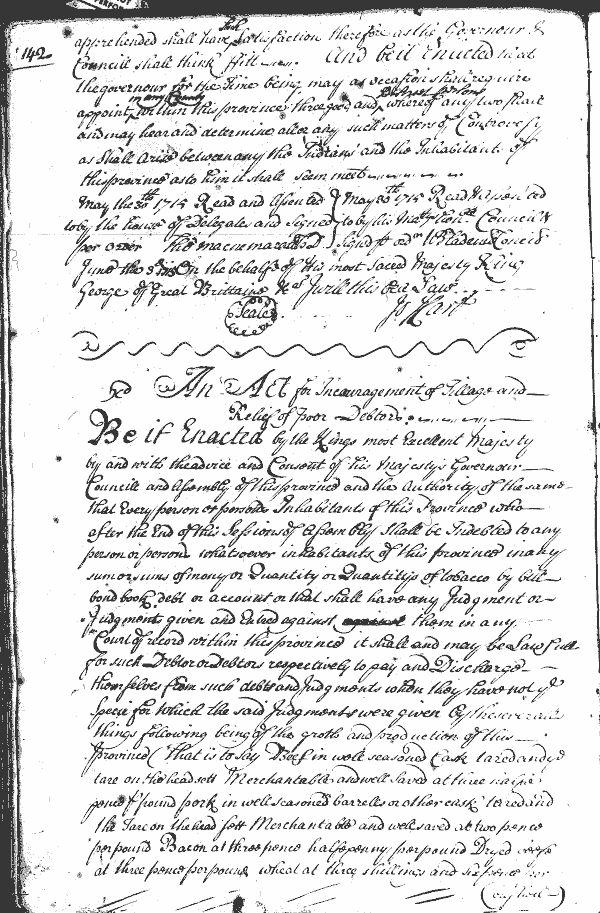 142
such
apprehended shall have Satisfaction therefore as the Governour &
Councill shall think ffitt And be it Enacted that
the governour for the time being may as occasion shall require
in any County
appoint within this province three good and whereof any two shall
and may hear and determine all or any such matters of Controversy
as shall arise between any the Indians and the Inhabitants of
this province as to him it shall seem meet
May the 30th 1715 Read and assented May 30th 1715 Read & assented
to by the house of Delegates and Signed to by his Majtys honble Councill
per order Tho macnemara Signed pr ordr WBladen
June the 3 In the behalfe of his most Saced Majesty King
George of Great Brittaine &ca I will this be a Law
Seale
Jo Hart
An Act for Incouragement of Tillage and
Relief of Poor Debtors
Be it Enacted by the Kings most Excellent Majesty
by and with the advice and Consent of his Majestys Governour
Councill and Assembly of this province and the Authority of the same
that Every person or persons Inhabitants of this Province who
after the End of this Session of Assembly shall be Indebted to any
person or persons whatsoever inhabitants of this province in any
sum or sums of mony or Quantity or Quantitys of tobacco by bill
bond book debt or account or that shall have any Judgment or
Judgments given and Entred against them in any
Court of record within this province it shall and may be Lawfull
for such Debtor or Debtors respectively to pay and Discharge
themselves from such debts and Judgments when they have not ye
specie for which the said Judgments were given by the severall
things following being of the groth and production of this
province (that is to say Beef in well seasoned Cask tared and ye
tare on the head sett Merchantable and well saved at three
pence p pound pork in well seasoned barrells or other cask tared and
the Tare on the head sett Merchantable and well saved at two pence
per pound Bacon at three pence halfe penny per pound Dryed beefe
at three pence per pound wheat at three shillings and six pence per